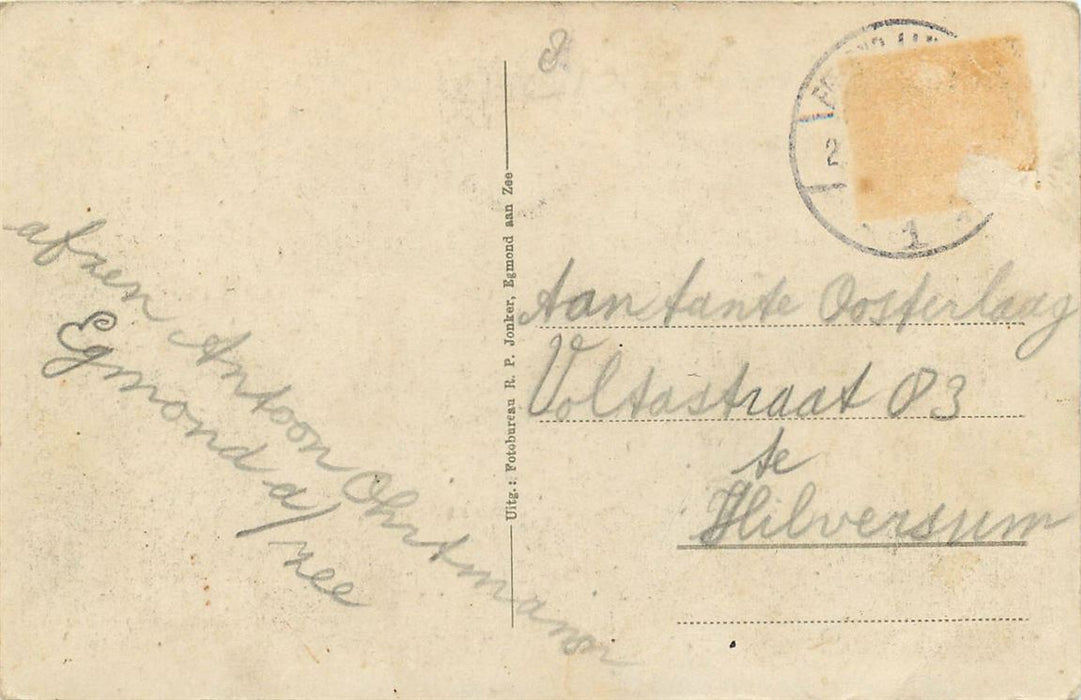 afzen Antoon Ohrtmann
Egmond a/zee
Uitg.: Fotobureau R. P. Jonker, Egmond aan Zee
Aan tante Oosterlaag
Voltastraat 83
te
Hilversum
2
1